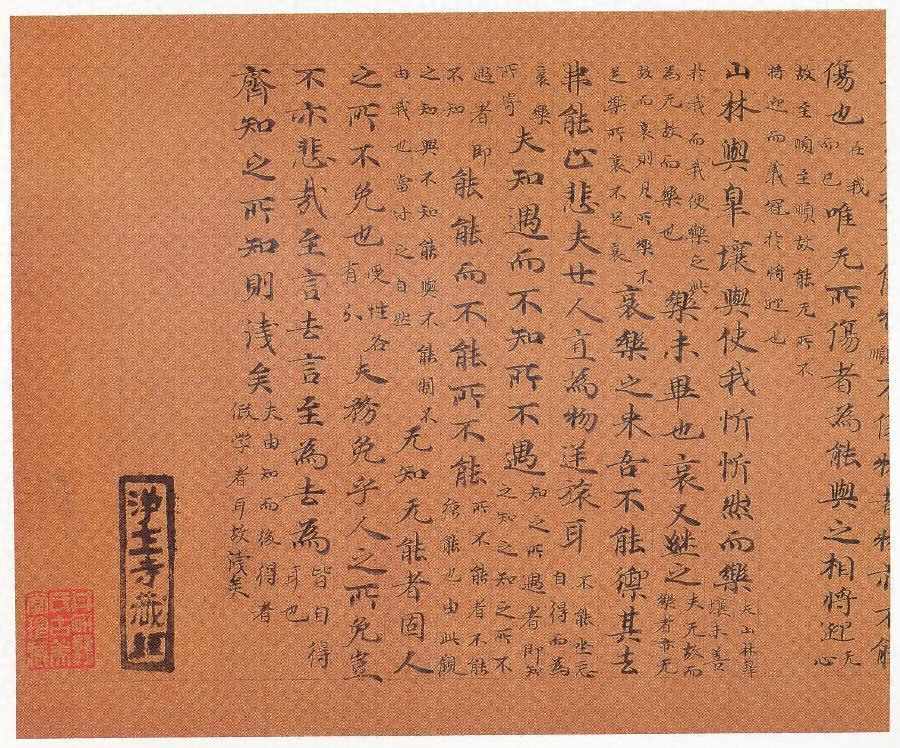 傷也在我而已唯无所傷者為能與之相將迎无心
故至順至順故能无所不
將迎而義冠於將迎也
山林與皐壤與使我忻忻然而樂夫山林皐壤未善
於我而我便樂之此
為无故而樂也樂未畢也哀又継之夫无故而樂者亦无
故而哀則凡所樂不
足樂所哀不足哀哀樂之来吾不能禦其去
弗能止悲夫世人直為物逆旅耳不能坐忘自得而為
哀樂所寄夫知遇而不知所不遇知之所遇者即知之知之知之所不
遇者即不知能能而不能所不能所不能者不能強能也由此觀
之知與不知能與不能制不
由我也當付之自然无知无能者固人
之所不免也受性各有分夫務免乎人之所免豈
不亦悲哉至言去言至為去為皆自得耳也
齊知之所知則淺矣夫由知而後得者假學者耳故淺矣
浄土寺藏経